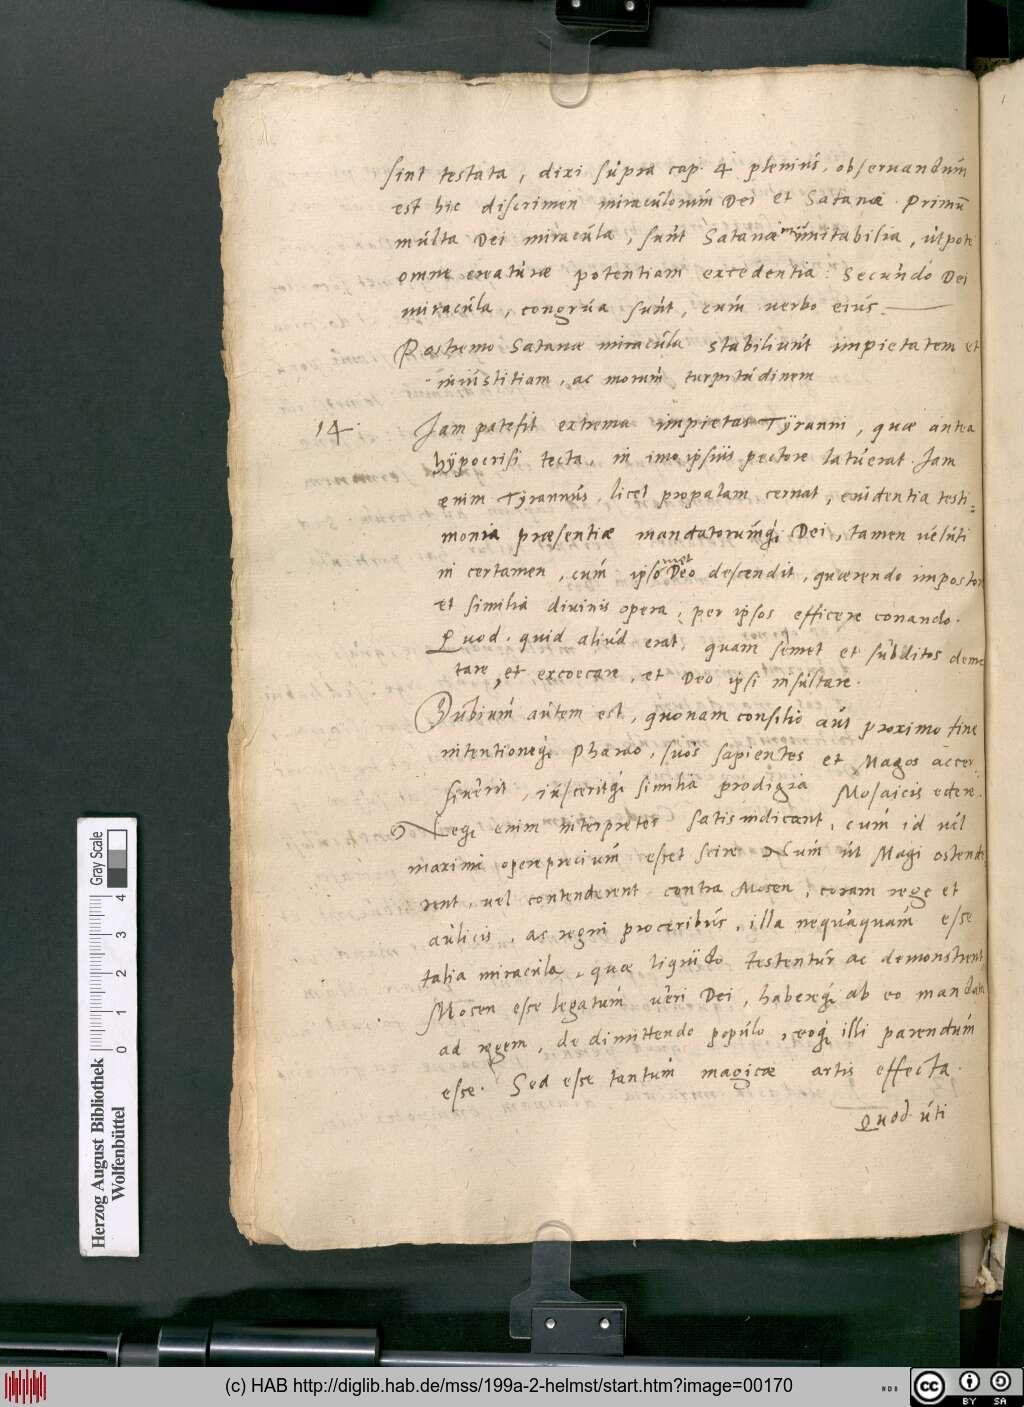 sint testata, dixi supra cap. 4 plenius, observandum
est hic discrimen miraculorum Dei et Satanæ. Primū
multa Dei miracula, sunt Satanæ inimitabilia, utpote
omnē creaturæ potentiam excedentia. Secundo Dei
miracula, congrua sunt, cum verbo eius.
Postremo Satanæ miracula stabiliunt impietatem et
iniustitiam, ac morum turpitudinem
14. Jam patefit extrema impietas Tÿranni, quæ antea
hÿpocrisi tecta, in imo ipsius pectore latuerat. Jam
enim Tyrannus, licet propalam cernat, evidentia testi=
monia præsentiæ mandatorumq; Dei, tamen veluti
in certamen, cum ipso met Deo descendit, quærendo impostor
et similia divinis opera, per ipsos efficere conando.
Quod. quid aliud erat, quam semet et subditos deme
tare, et excoecare, et Deo ipsi insultare.
Dubium autem est, quonam consilio aut proximo fine
intentioneq; Pharao, suos sapientes et Magos accer
siverit, iusseritq; similia prodigia Mosaicis edere.
Neq; enim interpretes satis indicant, cum id vel
maxime operæprecium esset scire. Num ut Magi ostende
rent, vel contenderent contra Mosen, coram rege et
aulicis, ac regni proceribus, illa nequaquam esse
talia miracula, quæ liquido testentur ac demonstrent
Mosen esse legatum veri Dei, habereq; ab eo mandata
ad regem, de dimittendo populo, eoq; illi parendum
esse. Sed esse tantum magicæ artis effecta.
Quod uti
Gray Scale
0 1 2 3 4
Herzog August Bibliothek
Wolfenbüttel
(c) HAB http://diglib.hab.de/mss/199a-2-helmst/start.htm?image=00170
cc BY SA